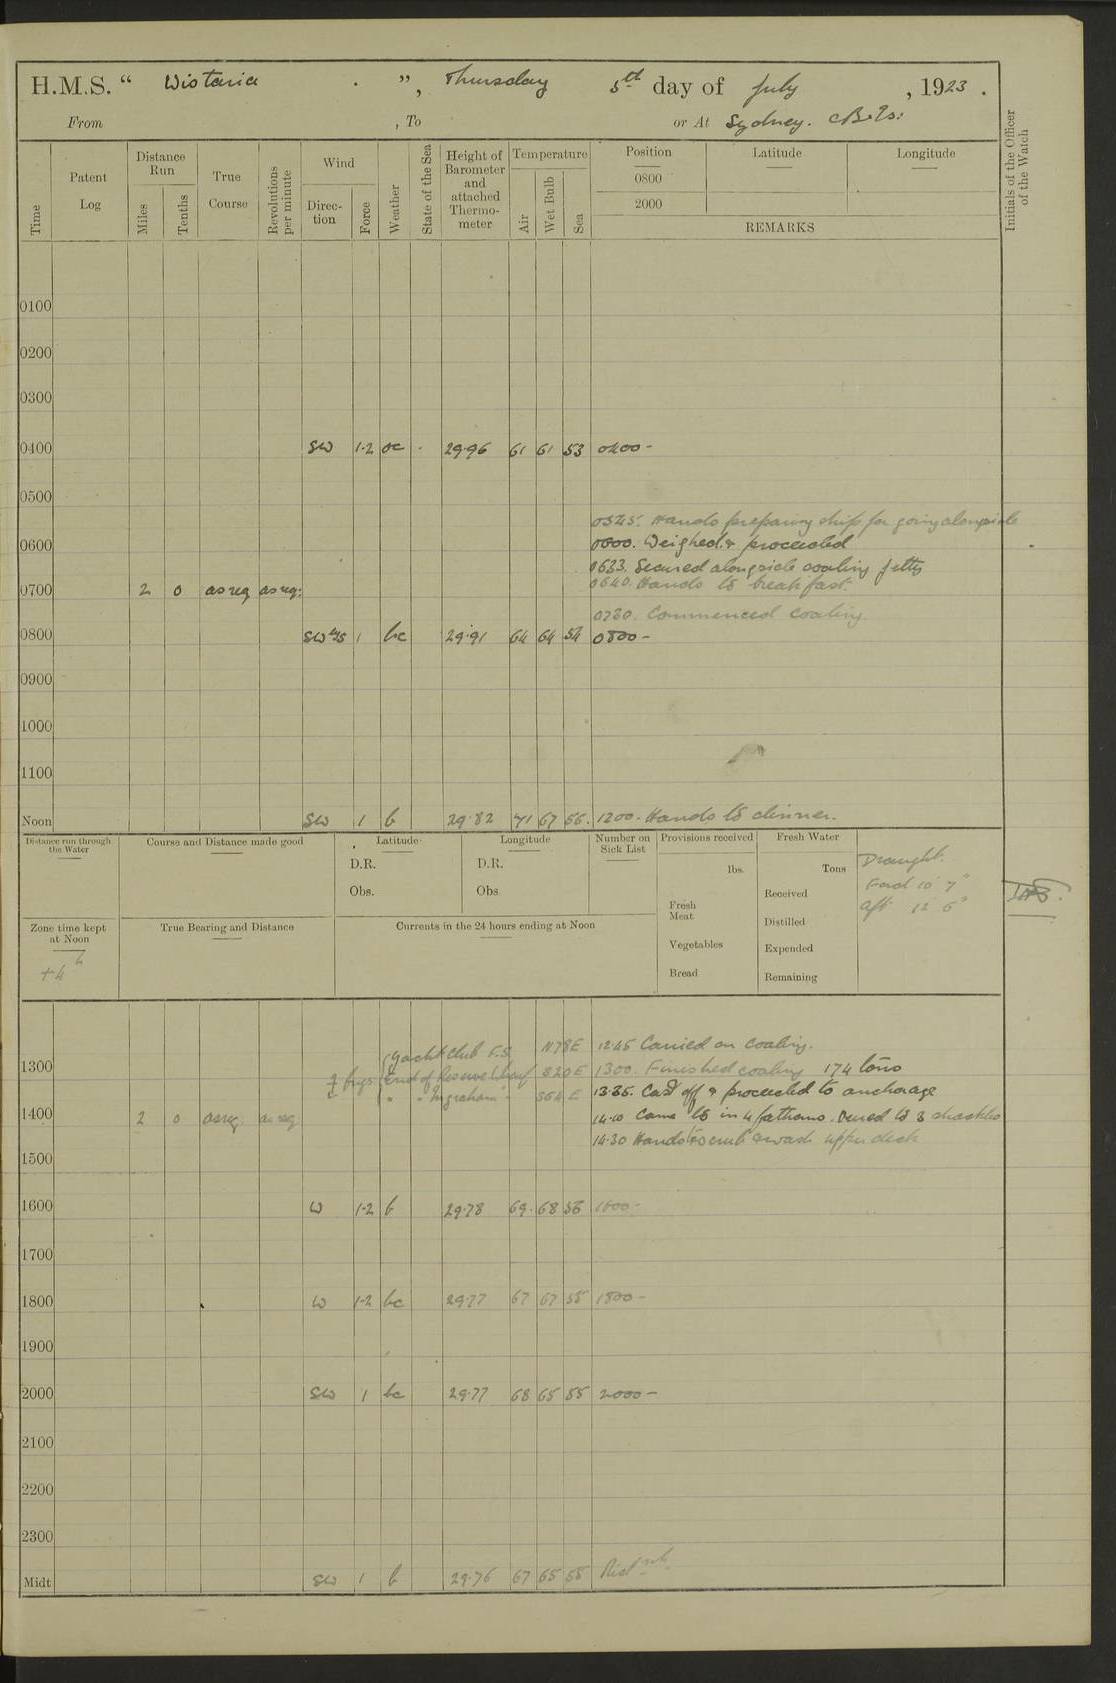 H.M.S. “ Wistaria . ”, Thursday 5th day of July , 1923 .
From , To or At Sydney. C.B. Is:
Time
Patent Log
Distance Run
Miles
Tenths
True Course
Revolutions per minute
Wind
Direc-tion
Force
Weather
State of the Sea
Height of Barometer and attached Thermo-meter
Temperature
Air
Wet Bulb
Sea
Position
0800
2000
Latitude
Longitude
REMARKS
Initials of the Officer of the Watch
0100
0200
0300
0400 SW 1-2 oc . 29.96 61 61 53 0400 -
0500
0545. Hands preparing ship for going alongside
0600 0600. Weighed & proceeded
0633. Secured alongside coaling jetty
0640. Hands to breakfast.
0700 2 0 as req as req:
0730. Commenced coaling.
0800 SW by S 1 bc 29.91 64 64 54 0800 -
0900
1000
1100
Noon SW 1 b 29.82 71 67 56. 1200. Hands to dinner.
Distance run through the Water
Course and Distance made good
Latitude
D.R.
Obs.
Longitude
D.R.
Obs
Number on Sick List
Provisions received
lbs.
Fresh Meat
Vegetables
Bread
Fresh Water
Tons
Received
Distilled
Expended
Remaining
Draught.
Ford 10' 7"
Aft 12' 6"
Zone time kept at Noon
+4
True Bearing and Distance
Currents in the 24 hours ending at Noon
(Yacht Club F.S. N78E 1245 Carried on coaling.
1300 brgs (End of Reserve Wharf S20E 1300. Finished coaling 174 tons
( " " Ingraham " S64E 13.35. Cast off & proceeded to anchorage
1400 2 0 as req. as req 14.10 Came to in 4 fathoms. Veered to 3 shackles
14.30 Hands to scrub & wash upper deck
1500
1600 W 1-2 b 29.78 69. 68 56 1600 -
1700
1800 W 1-2 bc 29.77 67 67 55 1800 -
1900
2000 SW 1 bc 29.77 68 65 55 2000 -
2100
2200
2300
Midt SW 1 b 29.76 67 65 55 Midnt.